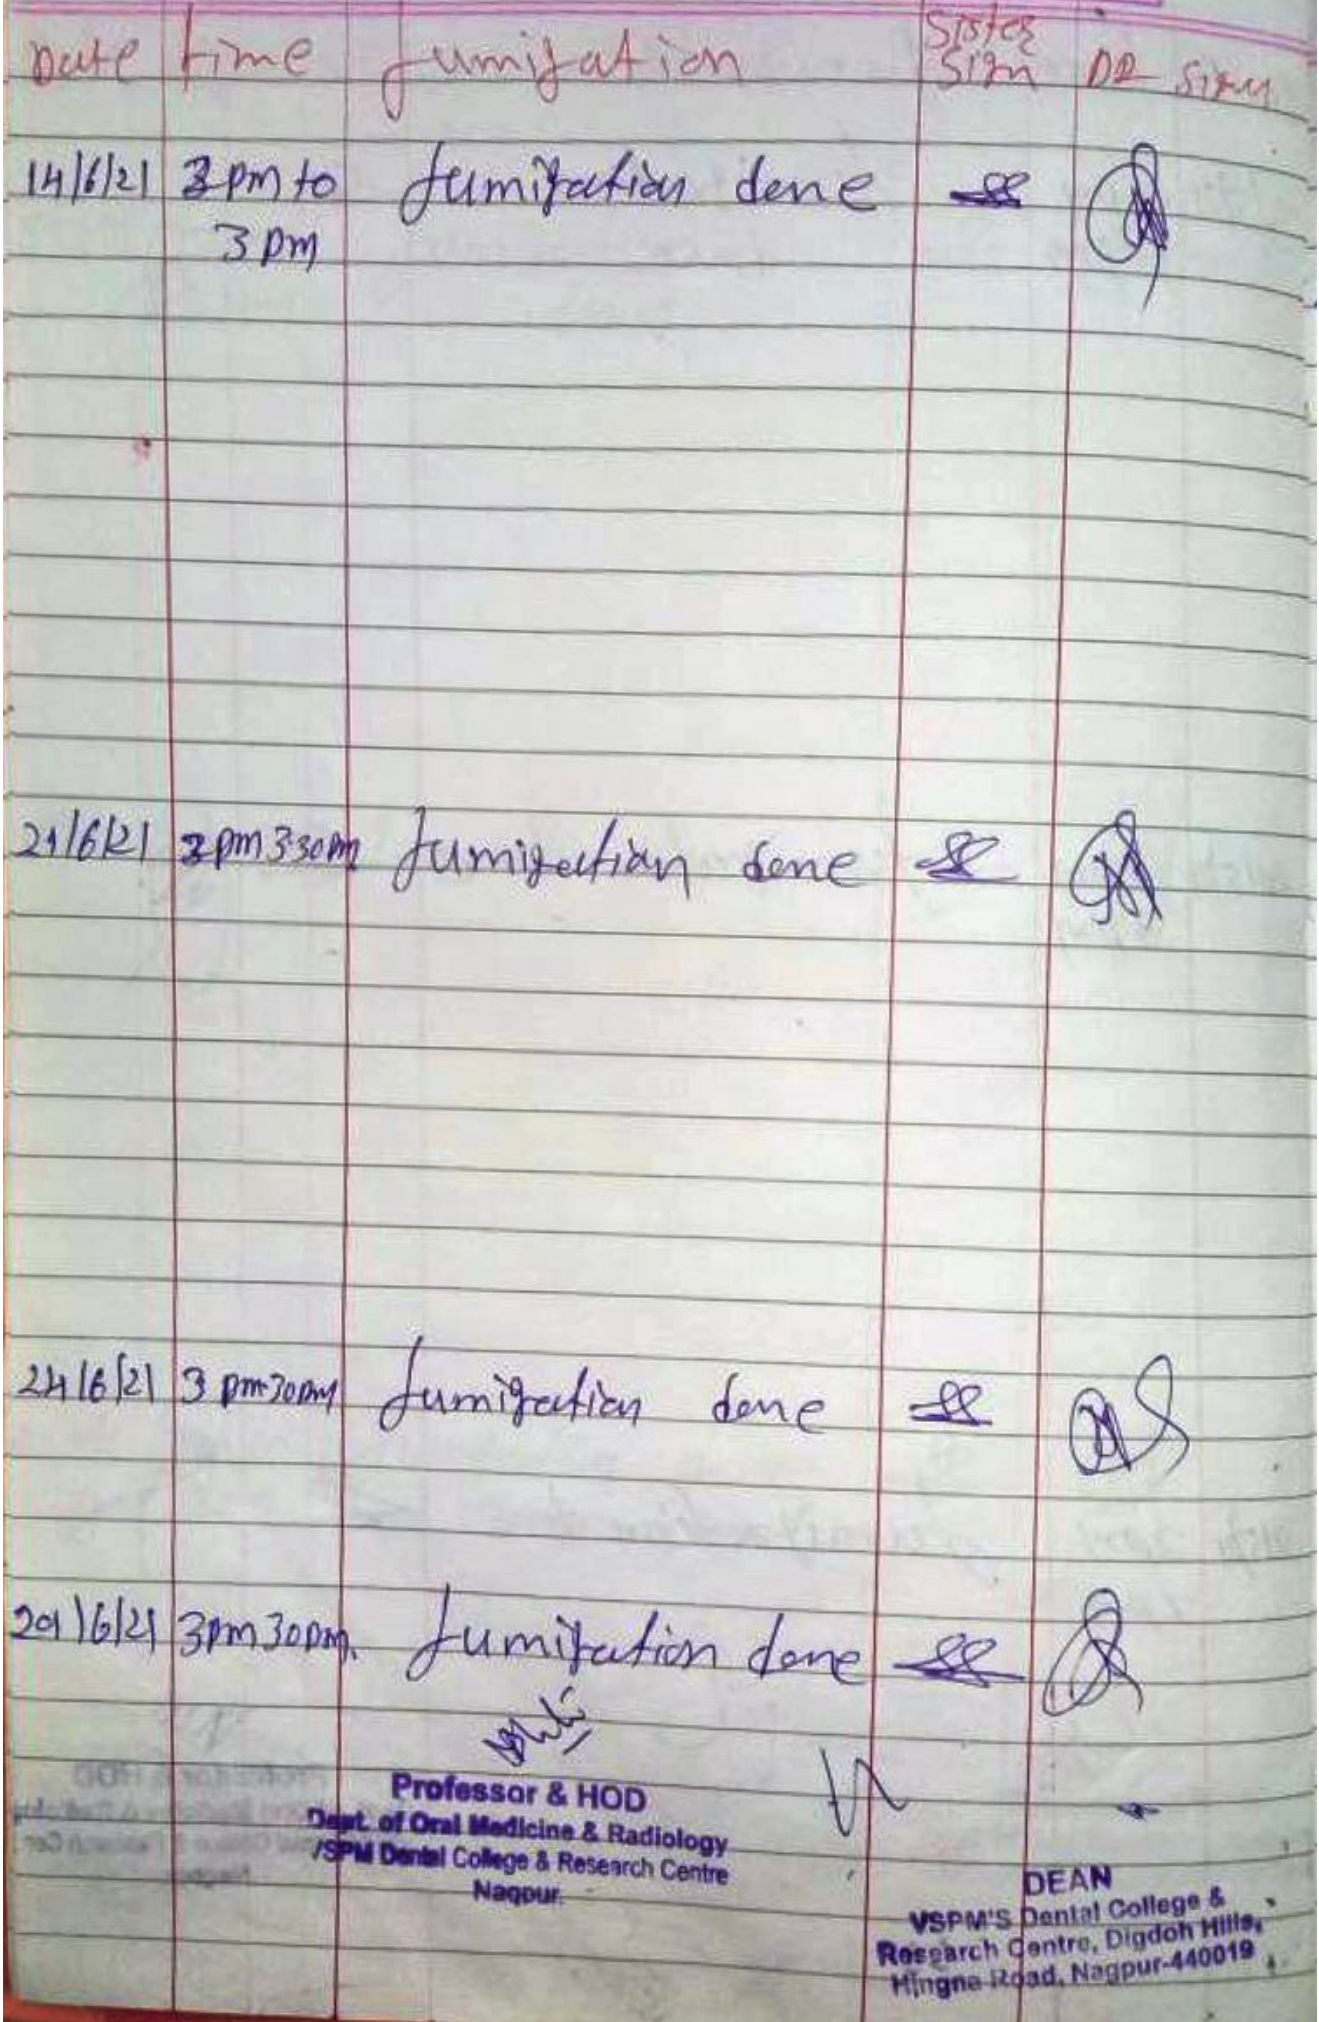 Date time fumigation Sister Sign DR Sign
14/6/21 2 pm to fumigation done
3 pm
21/6/21 2 pm 3:30 pm fumigation done
24/6/21 3 pm 30 pm fumigation done
29/6/21 3 pm 30 pm. fumigation done
Professor & HOD
Dept. of Oral Medicine & Radiology
VSPM Dental College & Research Centre
Nagpur.
DEAN
VSPM'S Dental College &
Research Centre, Digdoh Hills,
Hingna Road, Nagpur-440019